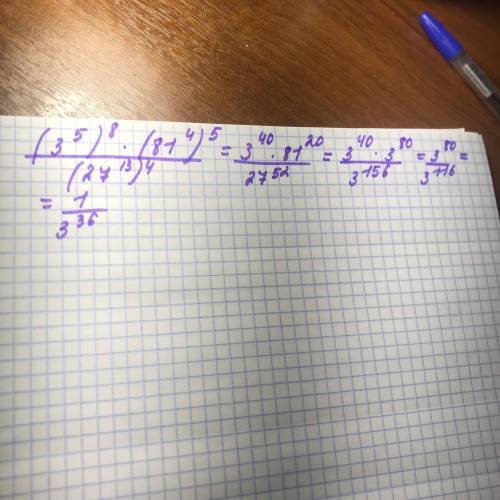 (3^5)^8 · (81^4)^5 / (27^13)^4 = 3^40 · 81^20 / 27^52 = 3^40 · 3^80 / 3^156 = 3^80 / 3^116 =
= 1 / 3^36